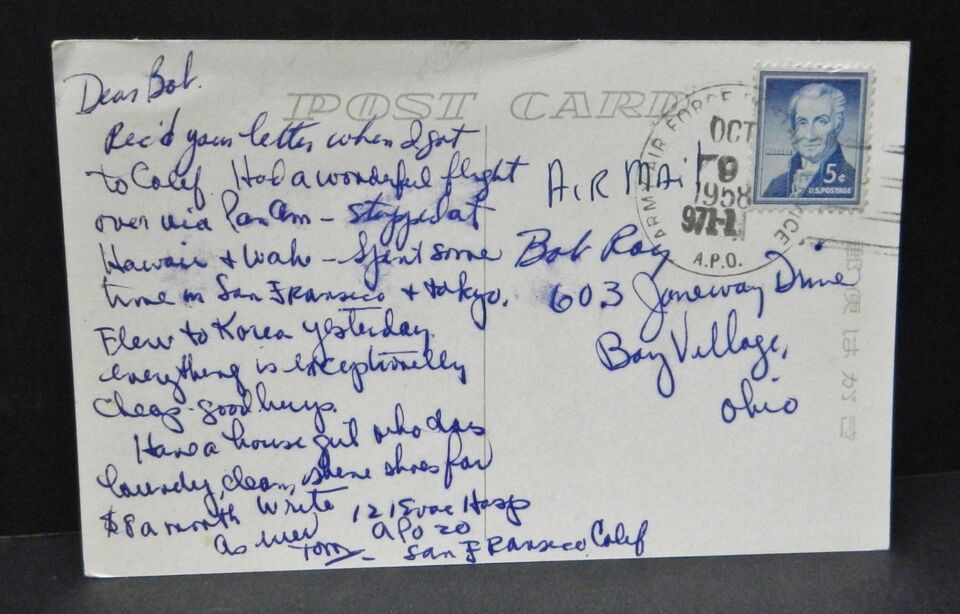 Dear Bob.
POST CARD
Rec'd your letter when I got
to Calif. Had a wonderful flight
over via PanAm - stopped at
Hawaii + Wake - spent some
time in San FRansico + tokyo.
Flew to Korea yesterday.
everything is exceptionally
cheap - good buys.
Have a house girl who does
laundry, clean, shine shoes for
$8 a month Write
as ever
Tom -
121 Evac Hosp
APO 20
San FRansico Calif
AIR MAIL
Bob Ray
603 Janeway Drive
Bay Village,
Ohio
ARMY AIR FORCE
OCT
9
1958
971-1
A.P.O.
5¢
U.S. POSTAGE
郵便はがき